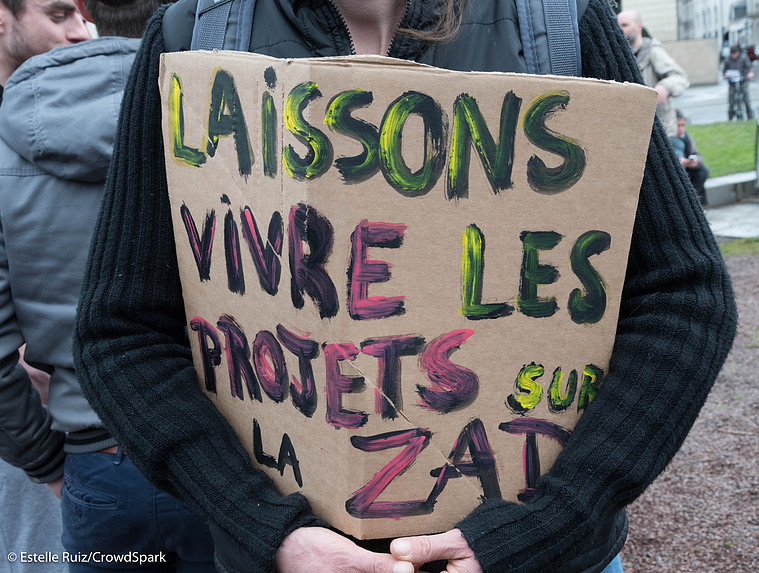 LAiSSONS
ViVRE LES
PROJETS SUR
LA ZAD
© Estelle Ruiz/CrowdSpark